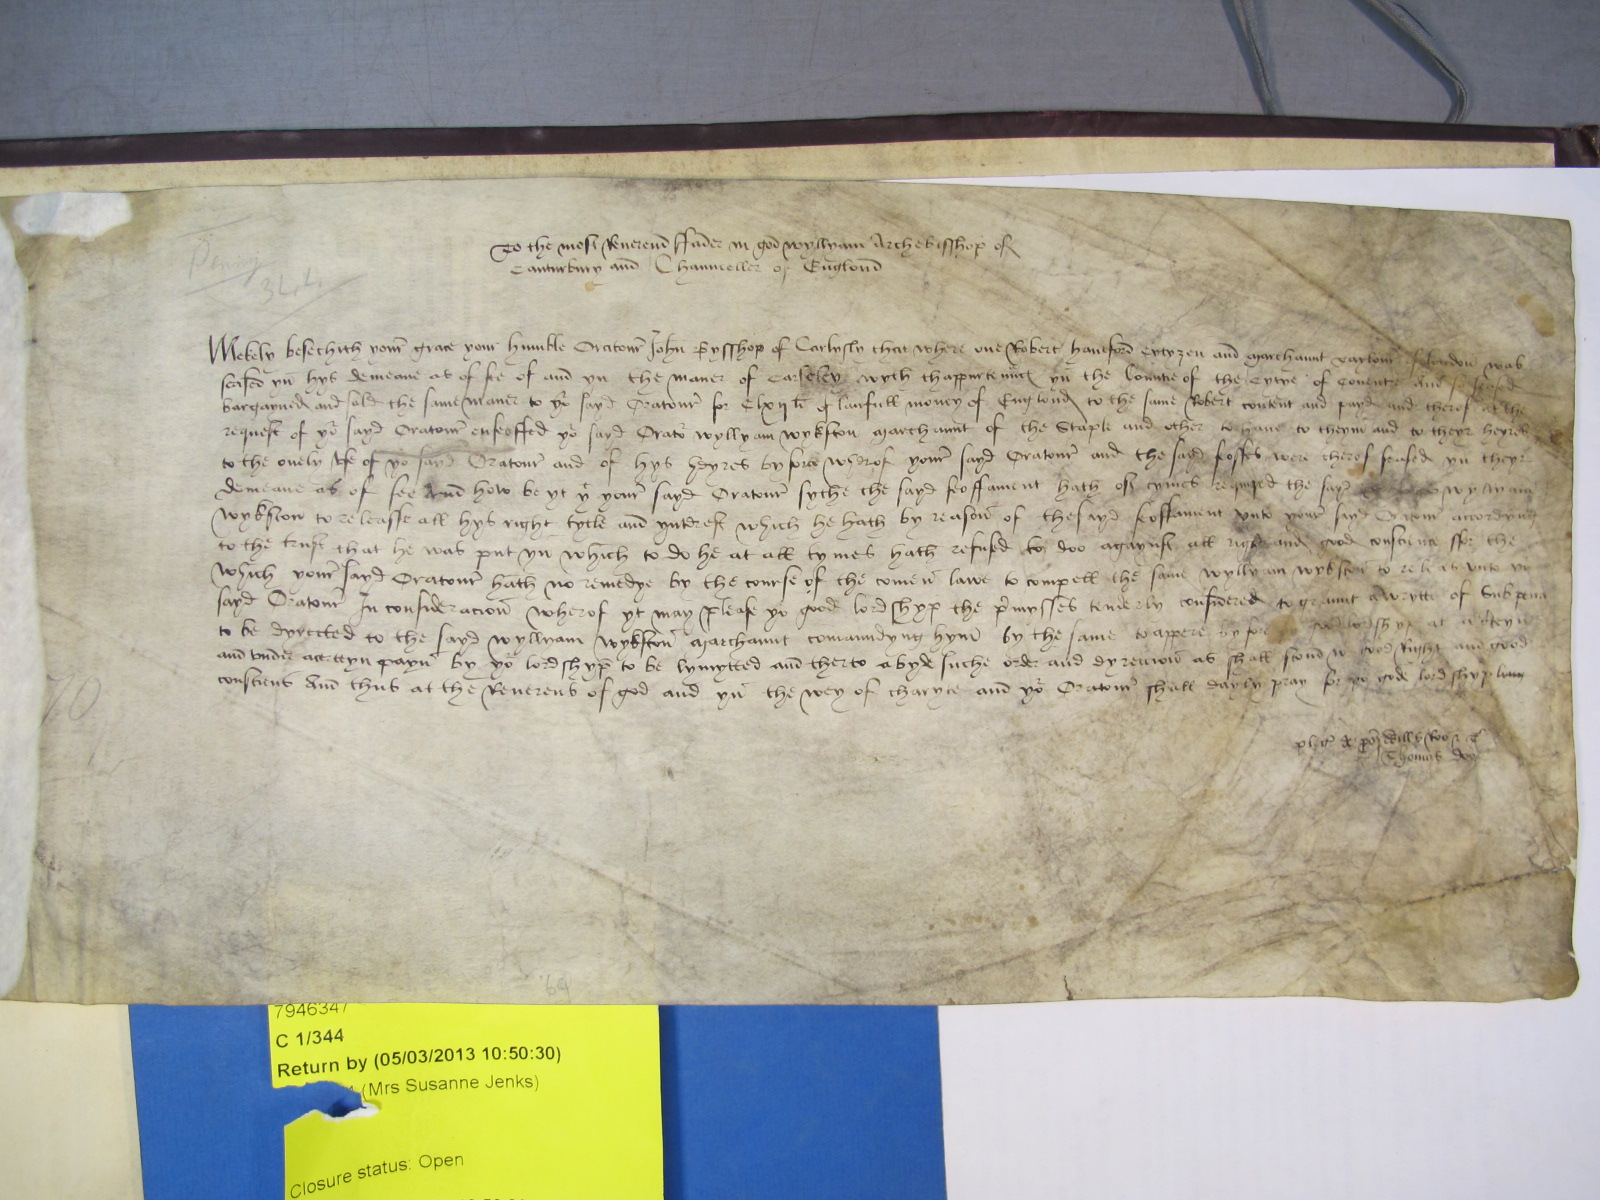 To the most Reverend ffader in god wyllyam Archebisshop of
Canturbury and Chaunceller of Englond
Mekely besechith your grace your humble Oratour John Bysshop of Carlysly that where one Robert haneford Cytyzen and marchaunt taylour of london was
seased yn hys demeane as of fee of and yn the maner of Carseley wyth thappurtenance yn the Countie of the Cytye of Coventre And so seased
bargayned and sold the same maner to yor sayd Oratour for Clxij li of laufull money of Englond to the same Robert content and payd and therof at the
request of yor sayd Oratour enfeoffed yor sayd Orator wyllyam wykston marchaunt of the Staple and other to have to theym and to theyr heyres
to the onely use of yor sayd Oratour and of hys heyres by force wherof your sayd Oratour and the sayd feoffes were therof seased yn theyr
demeane as of fee And how be yt yor your sayd Oratour sythe the sayd feoffament hath oft tymes requyred the sayd wyllyam
wykston to releasse all hys right tytle and yntrest which he hath by reason of the sayd feoffament unto your sayd Oratour accordyng
to the trust that he was put yn which to do he at all tymes hath refused to doo agaynst all right and good conscience ffor the
which your sayd Oratour hath no remedye by the course of the comen lawe to compell the same wyllyam wykston to releas unto yor
sayd Oratour In consideracion wherof yt may please yor good lordshyp the premysses tenderly consydered to graunt a wrytte of Subpena
to be dyrected to the sayd wyllyam wykston marchaunt comaundyng hym by the same to appere byfore yor good lordshyp at a certeyn
and under a certeyn payn by yor lordshyp to be lymytted and therto abyde suche order and dyreccion as shall stond with good Right and good
consciens And thus at the Reverens of god and yn the wey of charyte and yor Oratour shall dayly pray for yor gode lordshyp
pleg de pros Wills
Thomas
344
70
69
7946347
C 1/344
Return by (05/03/2013 10:50:30)
(Mrs Susanne Jenks)
Closure status: Open